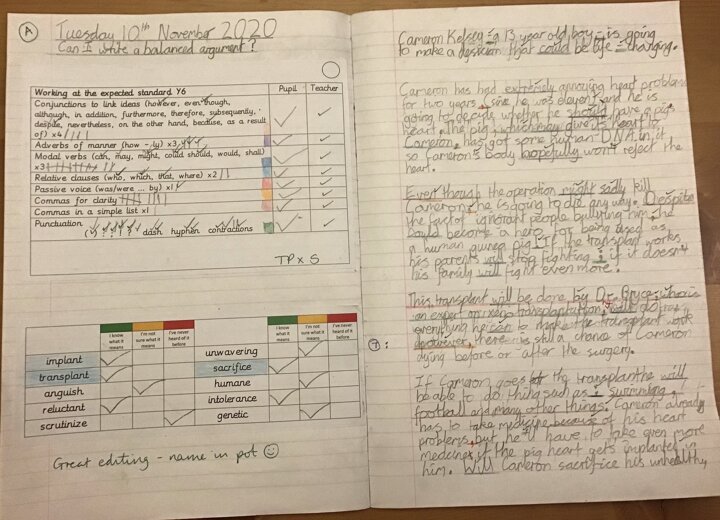 A
Tuesday 10th November 2020
Can I write a balanced argument?
Working at the expected standard Y6 Pupil Teacher
Conjunctions to link ideas (however, even though,
although, in addition, furthermore, therefore, subsequently,
despite, nevertheless, on the other hand, because, as a result
of) x4
Adverbs of manner (how – ly) x3
Modal verbs (can, may, might, could should, would, shall)
x3
Relative clauses (who, which, that, where) x2
Passive voice (was/were ... by) x1
Commas for clarity
Commas in a simple list x1
Punctuation
dash hyphen contractions
TP x S
I know what it means I'm not sure what it means I've never heard of it before I know what it means I'm not sure what it means I've never heard of it before
implant unwavering
transplant sacrifice
anguish humane
reluctant intolerance
scrutinize genetic
Great editing - name in pot ☺
Cameron Kelsey - a 13 year old boy - is going
to make a desicion that could be life - changing.
Cameron has had extremely annoying heart problems
for two years, since he was eleven, and he is
going to decide whether he should have a pigs
heart. The pig, which may give it's heart to
Cameron, has got some human DNA in it
so Cameron's body hopefully won't reject the
heart.
Even though the operation might sadly kill
Cameron, he is going to die any way. Despite
the fact of ignorant people bullying him, he
could become a hero for being used as
a human guinea pig! If the transplant works
his parents will stop fighting ; if it doesn't
his family will fight even more.
This transplant will be done by Dr. Bryce who is
an expert on xeno-transplantation, will do
everything he can to make the transplant work
however, there is still a chance of Cameron
dying before or after the surgery.
T:
If Cameron goes the transplant he will
be able to do thing such as : swimming,
football and many other things. Cameron already
has to take medicine because of his heart
problems, but he'll have to take even more
medecines if the pig heart gets implanted in
him. Will Cameron sacrifice his unhealthy,